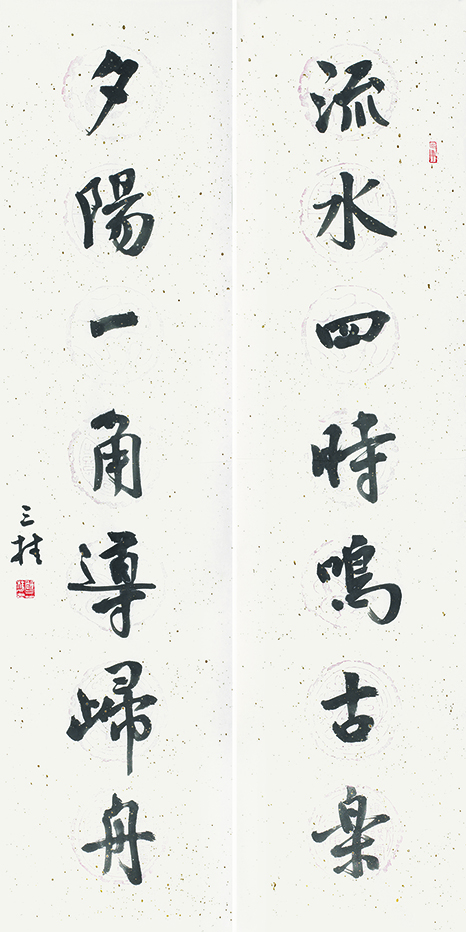 流水四時鳴古楽
夕陽一角導歸舟
三桂